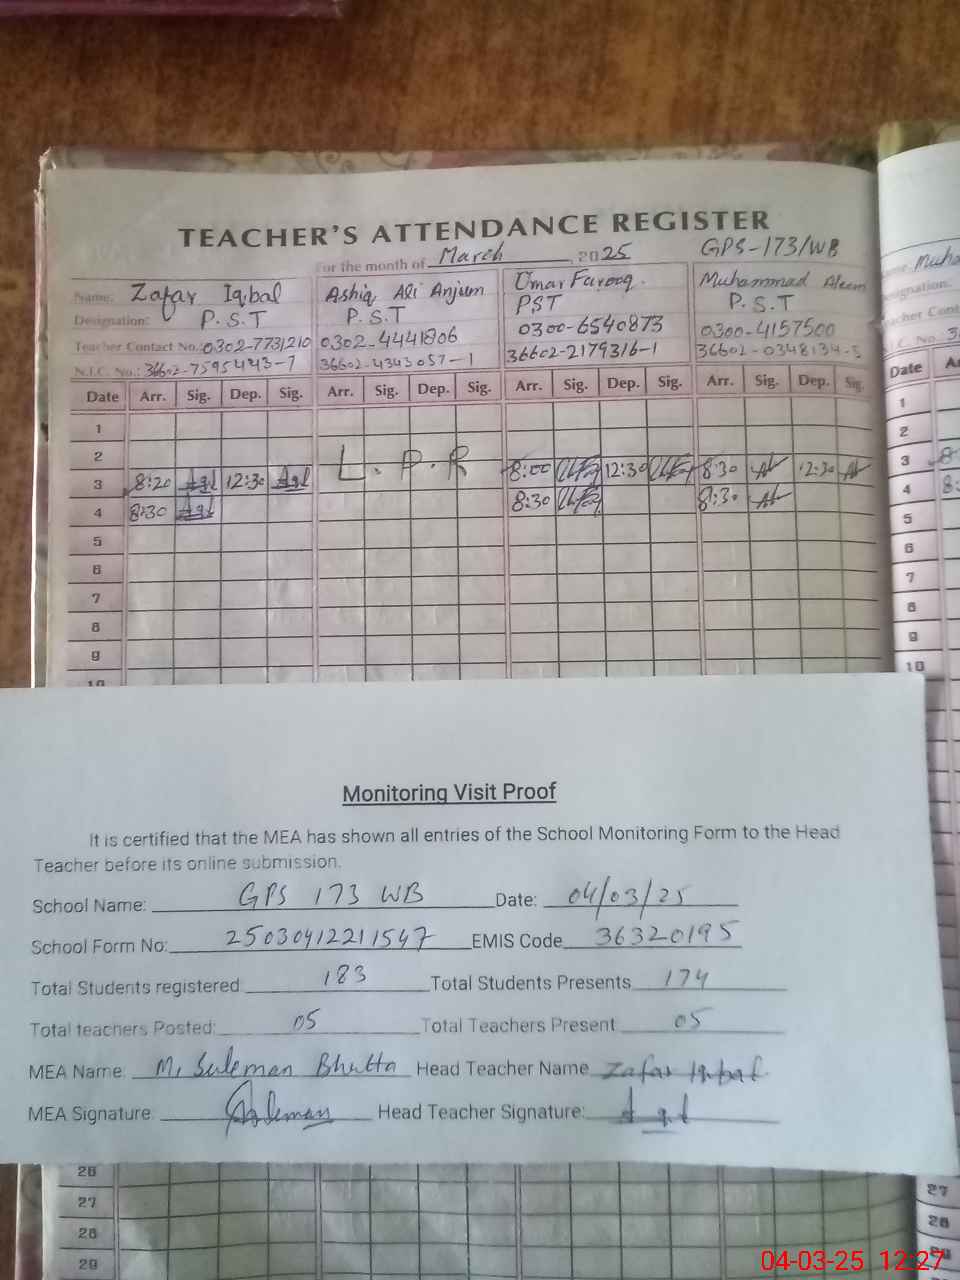 TEACHER'S ATTENDANCE REGISTER
For the month of March, 2025 GPS-173/WB
Name: Zafar Iqbal Ashiq Ali Anjum Umar Farooq. Muhammad Aleem
Designation: P.S.T P.S.T PST P.S.T
Teacher Contact No.: 0302-7731210 0302-4441806 0300-6540873 0300-4157500
N.I.C. No.: 36602-7595443-7 36602-4343057-1 36602-2179316-1 36602-0348134-5
Date Arr. Sig. Dep. Sig. Arr. Sig. Dep. Sig. Arr. Sig. Dep. Sig. Arr. Sig. Dep. Sig. Date
1 1
2 L.P.R 2
3 8:20 12:30 8:00 12:30 8:30 12:30 3
4 8:30 8:30 8:30 4
5 5
6 6
7 7
8 8
9 9
10 10
Monitoring Visit Proof
It is certified that the MEA has shown all entries of the School Monitoring Form to the Head
Teacher before its online submission.
School Name: GPS 173 WB Date: 04/03/25
School Form No: 25030412211547 EMIS Code 36320195
Total Students registered 183 Total Students Presents 174
Total teachers Posted: 05 Total Teachers Present 05
MEA Name: M. Suleman Bhutta Head Teacher Name Zafar Iqbal
MEA Signature: Suleman Head Teacher Signature:
26
27 27
28 28
29 29
04-03-25 12:27